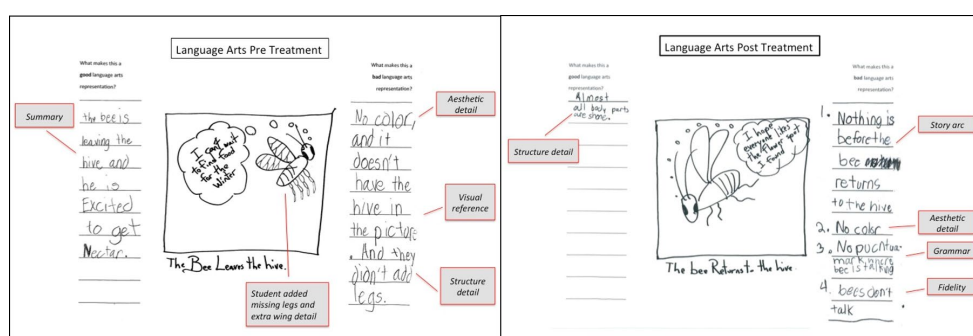 Language Arts Pre Treatment
What makes this a
good language arts
representation?
the bee is
leaving the
hive and
he is
Excited
to get
Nectar.
Summary
I can't wait
to find food
for the
winter
The Bee Leaves the hive.
Student added
missing legs and
extra wing detail
What makes this a
bad language arts
representation?
No color,
and it
doesn't
have the
hive in
the picture
. And they
didn't add
legs.
Aesthetic
detail
Visual
reference
Structure
detail
Language Arts Post Treatment
What makes this a
good language arts
representation?
Almost
all body parts
are shone.
Structure detail
I hope
everyone likes
the flower spot
I found
The bee Returns to the hive.
What makes this a
bad language arts
representation?
1. Nothing is
before the
bee
returns
to the hive
2. No color
3. No puchtua-
mark
bee is talking
4. bees don't
talk
Story arc
Aesthetic
detail
Grammar
Fidelity